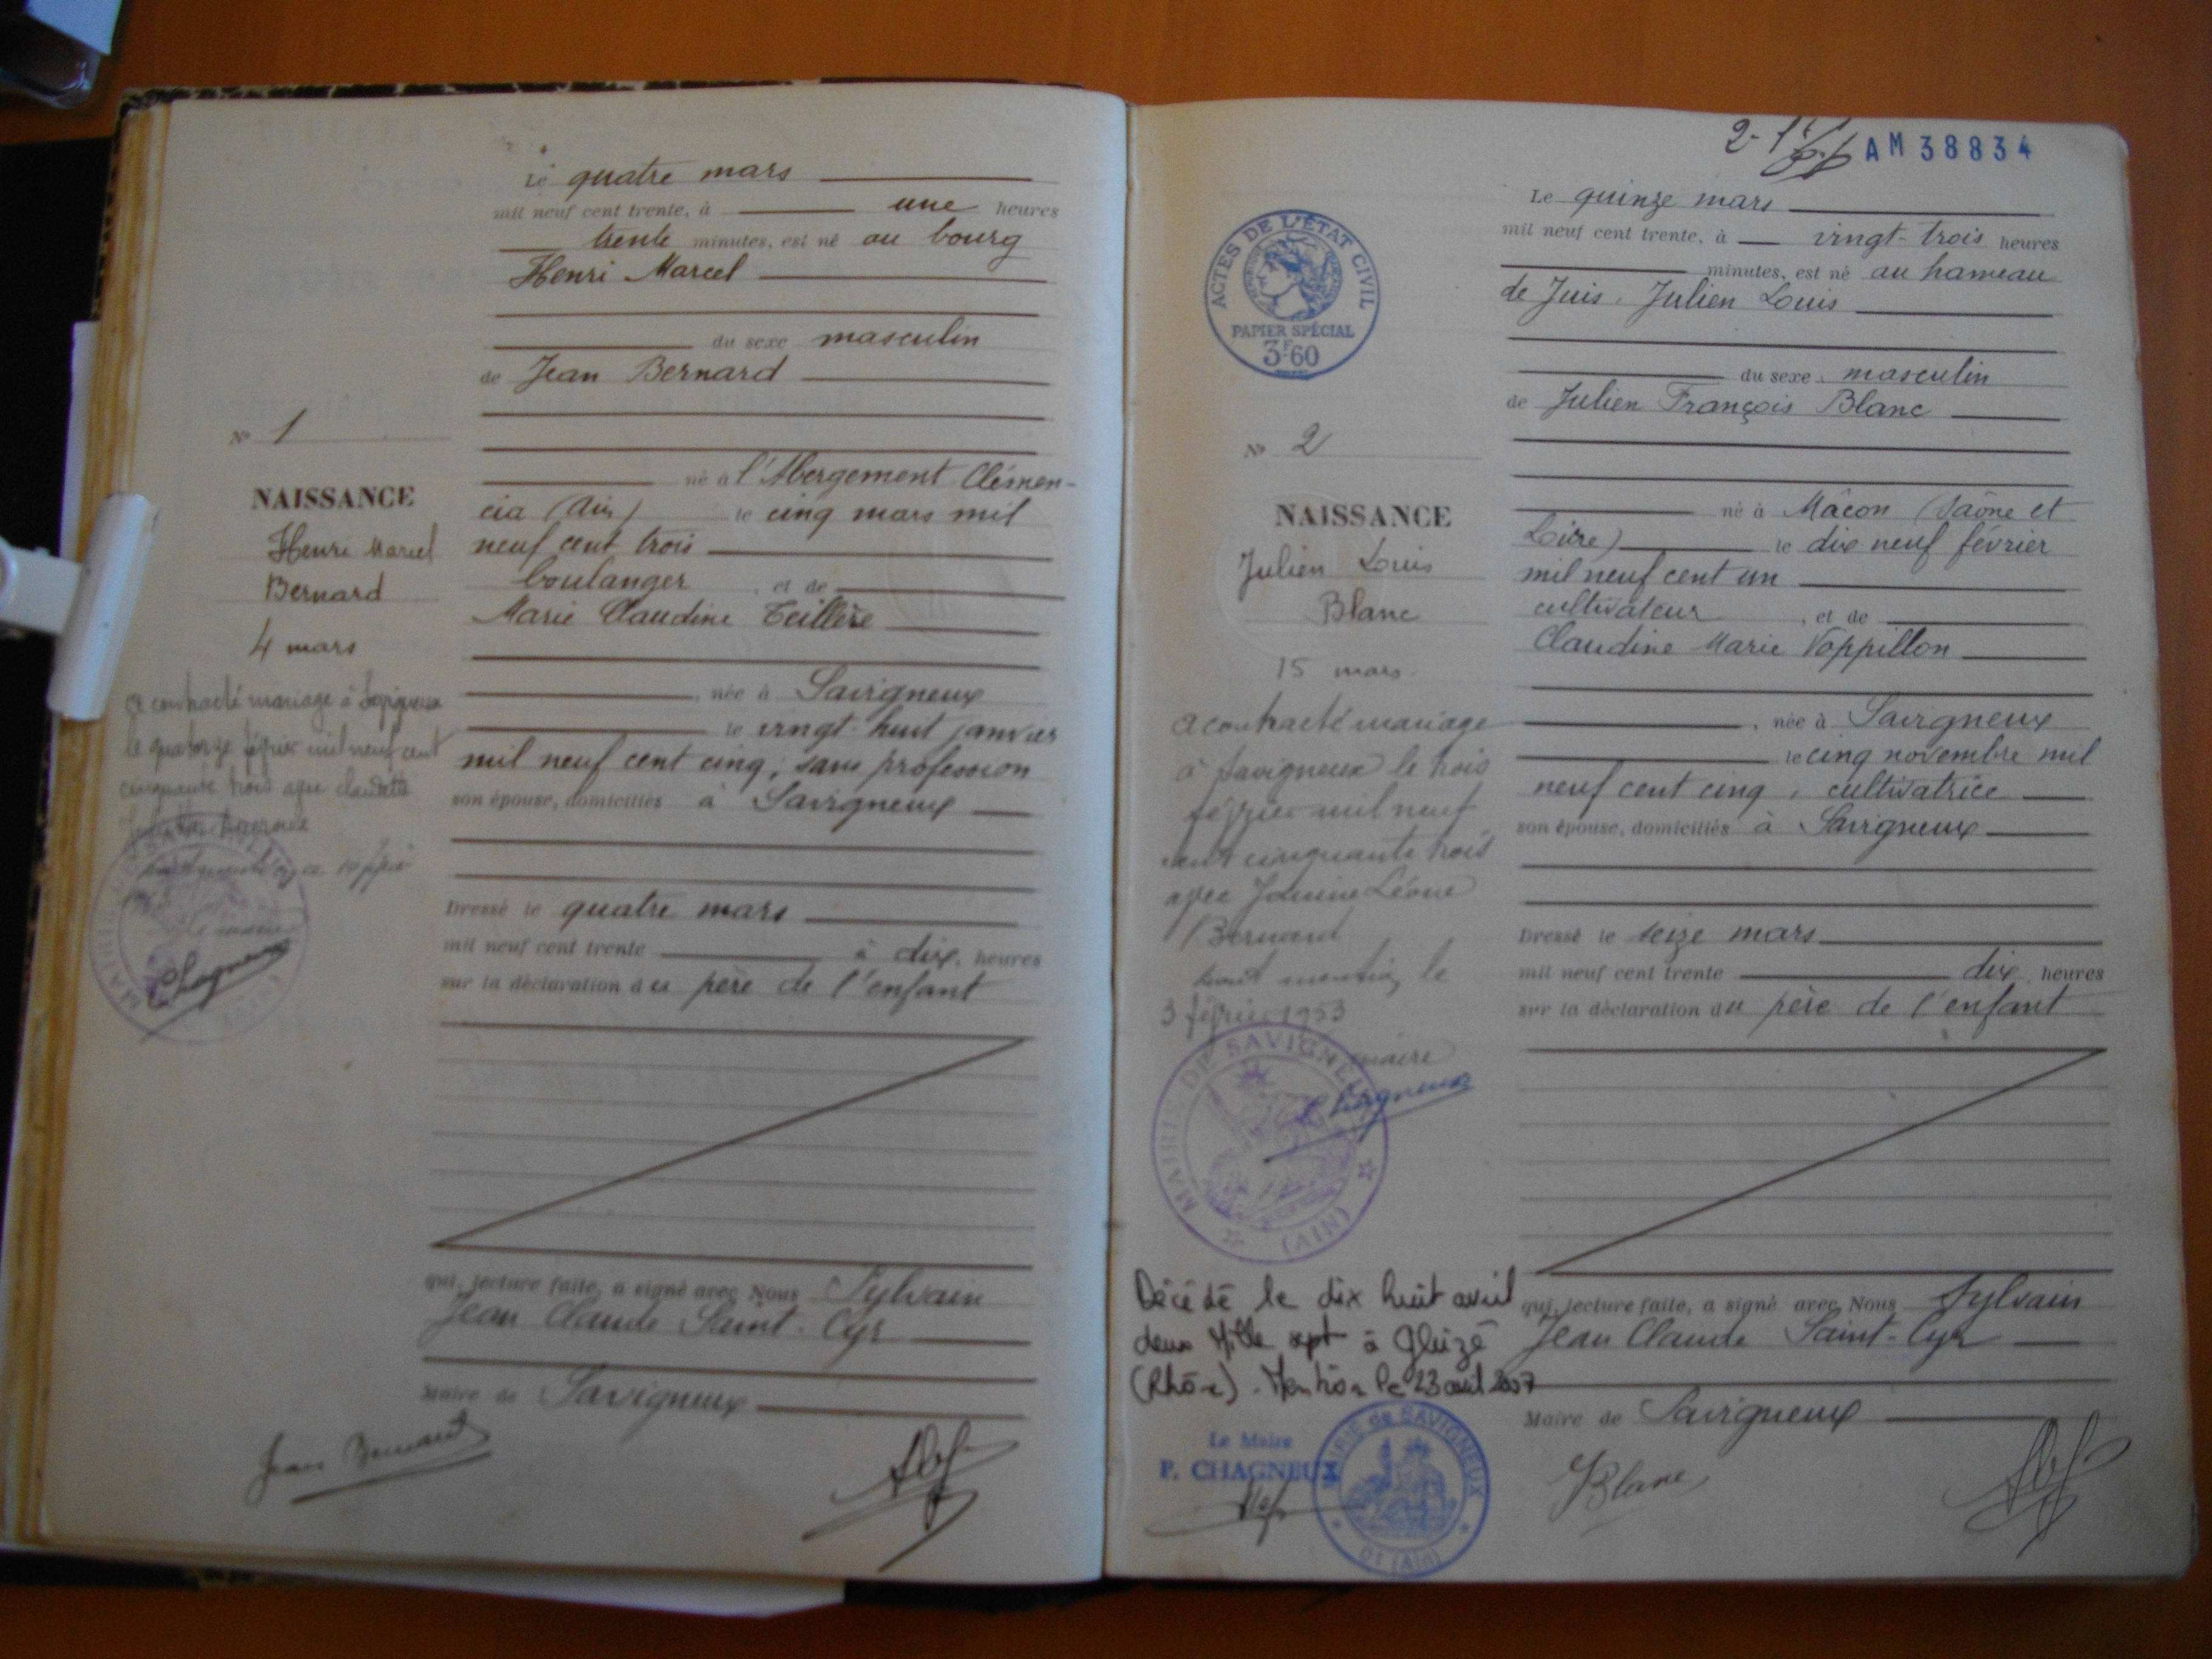 Le quatre mars
mil neuf cent trente, à une heures
trente minutes, est né au bourg
Henri Marcel
du sexe masculin
de Jean Bernard
N° 1
né à l'Abergement Clémen-
cia (Ain) le cinq mars mil
neuf cent trois
boulanger, et de
Marie Claudine Teillère
née à Savigneux
le vingt-huit janvier
mil neuf cent cinq, sans profession
son épouse, domiciliés à Savigneux
Dressé le quatre mars
mil neuf cent trente à dix heures
sur la déclaration du père de l'enfant
qui, lecture faite, a signé avec Nous Sylvain
Jean Claude Saint-Cyr
Maire de Savigneux
Jean Bernard
NAISSANCE
Henri Marcel
Bernard
4 mars
a contracté mariage à Savigneux
le quatorze février mil neuf cent
cinquante trois avec
Chagneux
2
AM 38834
ACTES DE L'ÉTAT CIVIL
PAPIER SPÉCIAL
3F60
Le quinze mars
mil neuf cent trente, à vingt-trois heures
minutes, est né au hameau
de Juis, Julien Louis
du sexe masculin
de Julien François Blanc
N° 2
né à Mâcon (Saône et
Loire) le dix neuf février
mil neuf cent un
cultivateur, et de
Claudine Marie Vappillon
née à Savigneux
le cinq novembre mil
neuf cent cinq, cultivatrice
son épouse, domiciliés à Savigneux
Dressé le seize mars
mil neuf cent trente dix heures
sur la déclaration du père de l'enfant
qui, lecture faite, a signé avec Nous Sylvain
Jean Claude Saint-Cyr
Maire de Savigneux
JBlanc
NAISSANCE
Julien Louis
Blanc
15 mars
a contracté mariage
à Savigneux le trois
février mil neuf
cent cinquante trois
avec Léone
Bernard
mention le
3 février 1953
maire
Chagneux
MAIRIE DE SAVIGNEUX
(AIN)
Décédé le dix huit avril
deux Mille sept à Gleizé
(Rhône). Mention le 23 avril 2007
Le Maire
P. CHAGNEUX
MAIRIE de SAVIGNEUX
01 (Ain)